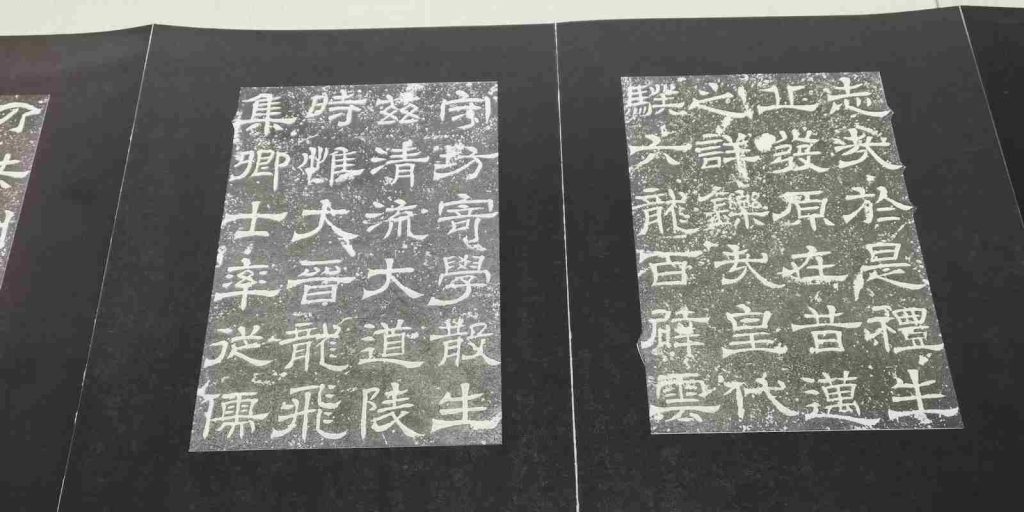 志矣於是禮生
止發原在昔邁
之詳鑠矣皇代
六龍百辟雲
守坊寄學散生
茲清流大道陵
時惟大晉龍飛
集卿士率從儒